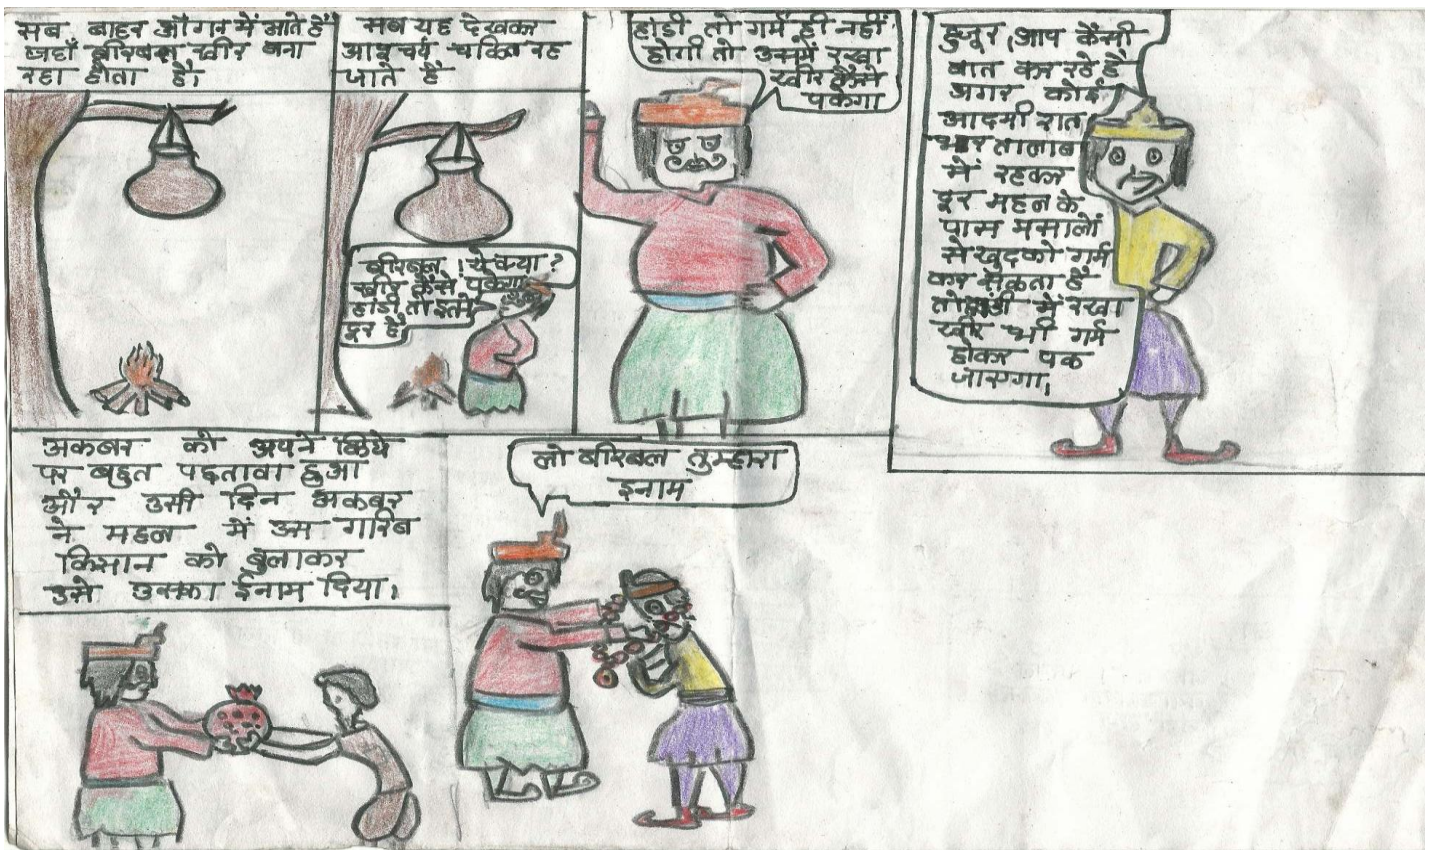 सब बाहर औगन में आते हैं
जहाँ बीरबल खीर बना
रहा होता है।
सब यह देखकर
आश्चर्य चकित रह
जाते हैं
बीरबल ! ये क्या ?
खीर कैसे पकेगा
हांडी तो इतनी
दूर है
हांडी तो गर्म ही नहीं
होगी तो उसमें रखा
खीर कैसे
पकेगा
हुजूर, आप कैसी
बात कर रहे हैं
अगर कोई
आदमी रात
भर तालाब
में रहकर
दूर महल के
पास मसालों
से खुदको गर्म
कर सकता है
तो हांडी में रखा
खीर भी गर्म
होकर पक
जाएगा।
अकबर को अपने किये
पर बहुत पछतावा हुआ
और उसी दिन अकबर
ने महल में उस गरिब
किसान को बुलाकर
उसे उसका ईनाम दिया।
लो बीरबल तुम्हारा
इनाम